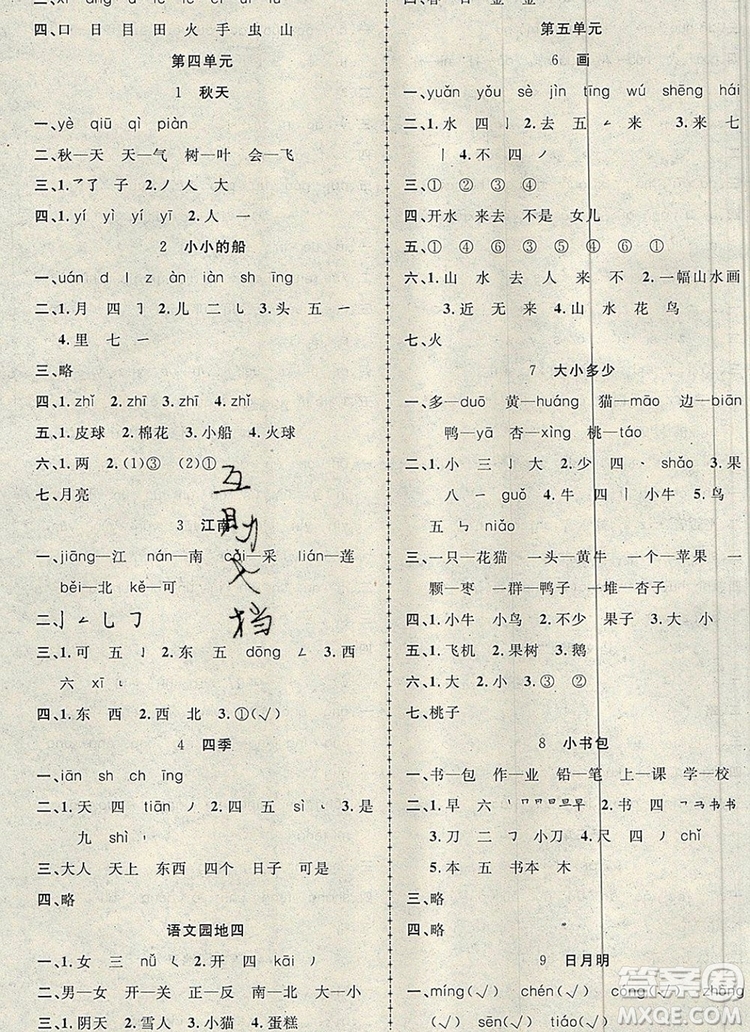 四、口 日 目 田 火 手 虫 山
第四单元
1 秋天
一、yè qiū qì piàn
二、秋—天 天—气 树—叶 会—飞
三、1.㇇了 子 2.ノ人 大
四、1.yí yí yì yī 2.人 一
2 小小的船
一、uán d l z àn iàn sh īng
二、1.月 四 ㇆ 2.儿 二 乚 3.头 五 一
4.里 七 一
三、略
四、1.zhǐ 2.zhī 3.zhī 4.zhǐ
五、1.皮球 2.棉花 3.小船 4.火球
六、1.两 2.(1)③ (2)①
七、月亮
3 江南
一、jiāng—江 nán—南 cǎi—采 lián—莲
běi—北 kě—可
二、亅 ㇀ 乚 ㇆
三、1.可 五 亅 2.东 五 dōng ㇀ 3.西
六 xī ㇄
四、1.东 西 2.西 北 3.①(√)
4 四季
一、iān sh ch īng
二、1.天 四 tiān ノ 2.四 五 sì ㇄ 3.是
九 shì 丶
三、大人 天上 东西 四个 日子 可是
四、略
语文园地四
一、1.女 三 nǚ ㄑ 2.开 四 kāi ノ
二、男—女 开—关 正—反
三、1.阴天 2.雪人 3.小猫 4.蛋糕
第五单元
6 画
一、yuǎn yǒu sè jìn tīng wú shēng hái
二、1.水 四 亅 2.去 五 ㇀ 来 3.来 七
丨 4.不 四 ノ
三、① ② ③
四、开水 来去 不是 女儿
五、① ② ④ ③ ⑤ ⑥
六、1.山 水 人 来 不 2.一幅山水画
3.近 无 来 4.山 水 花 鸟
七、火
7 大小多少
一、多—duō 黄—huáng 猫—māo 边—biān
鸭—yā 杏—xìng 桃—táo
二、1.小 三 亅 大 2.少 四 ノ shǎo 3.果
八 一 guǒ 4.牛 四 丨 小牛 5.鸟
五 ㇉ niǎo
三、一只—花猫 一头—黄牛 一个—苹果 一
颗—枣 一群—鸭子 一堆—杏子
四、1.小牛 小鸟 2.不少 果子 3.大 小
五、1.飞机 2.果树 3.鹅
六、1.大 小 2.小 大 3.③ ②
七、桃子
8 小书包
一、书—包 作—业 铅—笔 上—课 学—校
二、1.早 六 丨 口 日 旦 早 2.书 四
3.刀 二 ㇆ 小刀 4.尺 四 ノ chǐ
5.本 五 书本 木
三、略
四、略
9 日月明
一、míng(√) chén(√) cóng(√) zhōng
(√) sēn(√) tiáo(√)
互助文档
答案圈
MXQE.COM